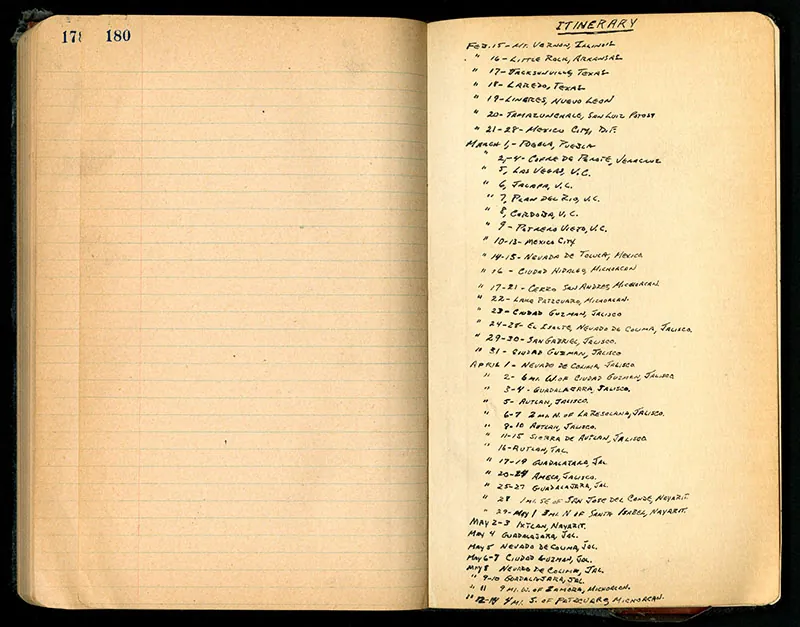 178 180
ITINERARY
FEB. 15 - MT. VERNON, ILLINOIS
" 16 - LITTLE ROCK, ARKANSAS
" 17 - JACKSONVILLE, TEXAS
" 18 - LAREDO, TEXAS
" 19 - LINARES, NUEVO LEON
" 20 - TAMAZUNCHALE, SAN LUIZ POTOSI
" 21-28 - MEXICO CITY, D.F.
MARCH 1, - PUEBLA, PUEBLA
" 2, -4 - COFRE DE PEROTE, VERACRUZ
" 5, LAS VEGAS, V.C.
" 6, JALAPA, V.C.
" 7, PLAN DEL RIO, V.C.
" 8, CORDOBA, V.C.
" 9 - POTRERO VIEJO, V.C.
" 10-13 - MEXICO CITY
" 14-15 - NEVADO DE TOLUCA, MEXICO
" 16 - CIUDAD HIDALGO, MICHOACAN
" 17-21 - CERRO SAN ANDRES, MICHOACAN
" 22 - LAKE PATZCUARO, MICHOACAN.
" 23 - CIUDAD GUZMAN, JALISCO
" 24-28 - EL ISOLTE, NEVADO DE COLIMA, JALISCO.
" 29-30 - SAN GABRIEL, JALISCO.
" 31 - CIUDAD GUZMAN, JALISCO
APRIL 1 - NEVADO DE COLIMA, JALISCO
" 2 - 6 MI. W. OF CIUDAD GUZMAN, JALISCO
" 3-4 - GUADALAJARA, JALISCO.
" 5 - AUTLAN, JALISCO.
" 6-7 2 MI. N. OF LA RESOLANA, JALISCO.
" 8-10 AUTLAN, JALISCO.
" 11-15 SIERRA DE AUTLAN, JALISCO
" 16 - AUTLAN, JAL.
" 17-19 GUADALAJARA, JAL
" 20-24 AMECA, JALISCO.
" 25-27 GUADALAJARA, JAL
" 28 1 MI. SE OF SAN JOSE DEL CONDE, NAYARIT
" 29 - MAY 1 3 MI. N OF SANTA ISABEL, NAYARIT.
MAY 2-3 IXTLAN, NAYARIT.
MAY 4 GUADALAJARA, JAL.
MAY 5 NEVADO DE COLIMA, JAL.
MAY 6-7 CIUDAD GUZMAN, JAL.
MAY 8 NEVADO DE COLIMA, JAL
" 9-10 GUADALAJARA, JAL.
" 11 9 MI. W. OF ZAMORA, MICHOACAN.
" 12-14 4 MI. S. OF PATZCUARO, MICHOACAN.